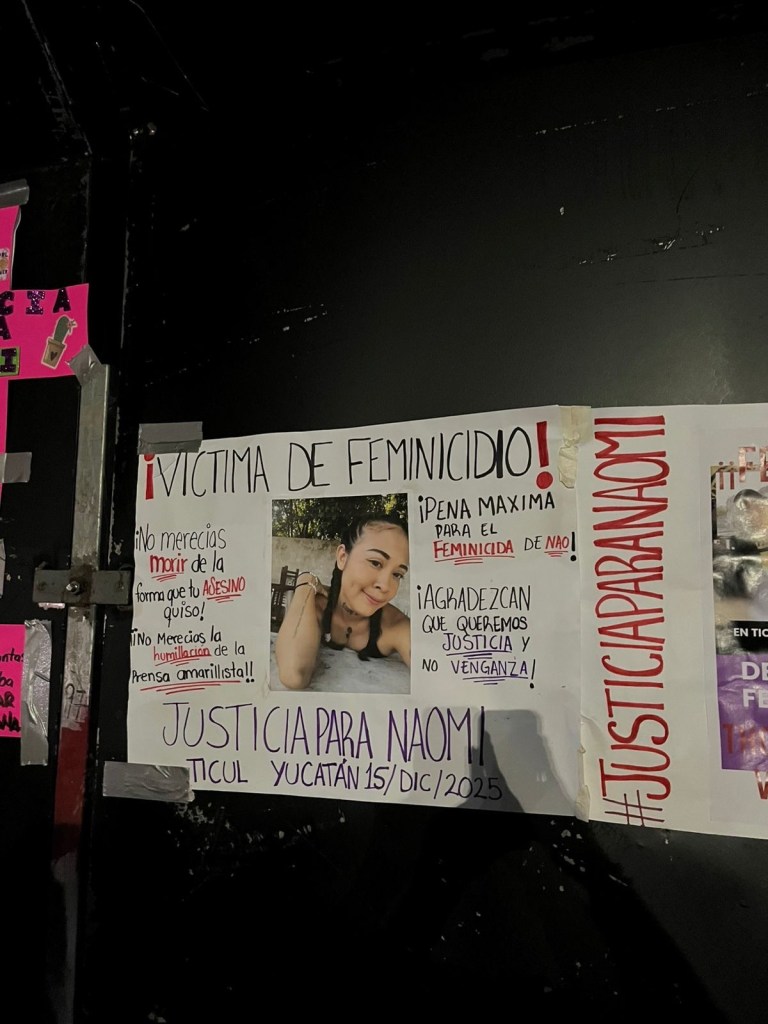 CIA
A
I
¡VICTIMA DE FEMINICIDIO!
¡No merecias
morir de la
forma que tu ASESINO
quiso!
¡No Merecias la
humillación de la
Prensa amarillista!!
¡PENA MAXIMA
PARA EL
FEMINICIDA DE NAO!
¡AGRADEZCAN
QUE QUEREMOS
JUSTICIA Y
NO VENGANZA!
JUSTICIA PARA NAOMI
TICUL YUCATÁN 15/DIC/2025
#JUSTICIAPARANAOMI
¡¡FE
EN TIC
DE
FE